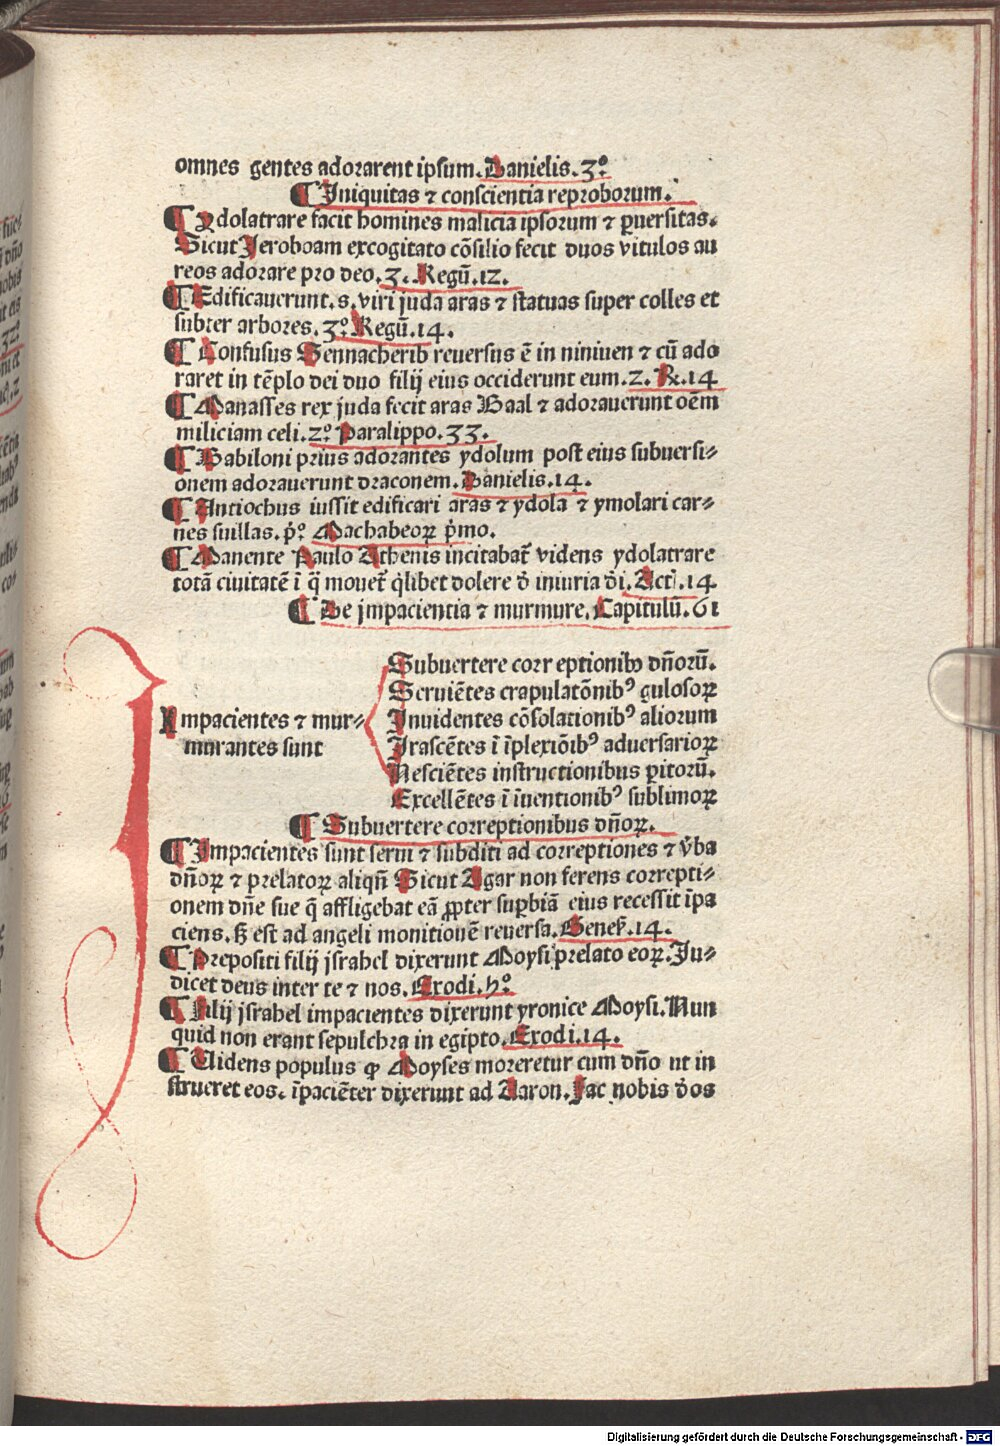 omnes gentes adorarent ipsum. Danielis. 3º
¶ Iniquitas ⁊ conscientia reproborum.
¶ Ydolatrare facit homines malicia ipsorum ⁊ ꝑuersitas.
Sicut Jeroboam excogitato cõsilio fecit duos vitulos au
reos adorare pro deo. 3. Regũ. 12.
¶ Edificauerunt. s. viri juda aras ⁊ statuas super colles et
subter arbores. 3º Regũ. 14.
¶ Confusus Sennacherib reuersus ē in niniuen ⁊ cũ ado
raret in tẽplo dei duo filij eius occiderunt eum. 2. R. 14
¶ Manasses rex juda fecit aras Baal ⁊ adorauerunt oẽm
miliciam celi. 2º Paralippo. 33.
¶ Babiloni prius adorantes ydolum post eius subuersi⸗
onem adorauerunt draconem. Danielis. 14.
¶ Antiochus iussit edificari aras ⁊ ydola ⁊ ymolari car⸗
nes suillas. p̓º Machabeoꝝ p̓mo.
¶ Manente Paulo Athenis incitabat᷑ videns ydolatrare
totã ciuitatẽ ĩ q̃ mouet᷑ q̓libet dolere d̓ iniuria di. Act. 14
¶ De jmpacientia ⁊ murmure. Capitulũ. 61
Subuertere correptionibꝰ dñorũ.
Seruiẽtes crapulatõnibꝰ gulosoꝝ
Impacientes ⁊ mur⸗
murantes sunt
Inuidentes cõsolationibꝰ aliorum
Irascẽtes ĩ ĩplexiõibꝰ aduersarioꝝ
Nesciẽtes instructionibus ꝑitorũ.
Excellẽtes ĩ ĩuentionibꝰ sublimoꝝ
¶ Subuertere correptionibus dñoꝝ.
¶ Impacientes sunt serui ⁊ subditi ad correptiones ⁊ v̓ba
dñoꝝ ⁊ prelatoꝝ aliqñ Sicut Agar non ferens correpti⸗
onem dñe sue q̃ affligebat eã ꝓpter suꝑbiã eius recessit ĩpa
ciens. sꝫ est ad angeli monitionẽ reuersa. Genes. 14.
¶ Prepositi filij jsrahel dixerunt Moysi prelato eoꝝ. Ju⸗
dicet deus inter te ⁊ nos. Exodi. 5º
¶ Filij jsrahel impacientes dixerunt yronice Moysi. Nun
quid non erant sepulchra in egipto. Exodi. 14.
¶ Uidens populus ꝙ Moyses moreretur cum dño ut in
strueret eos. ĩpaciẽter dixerunt ad Aaron. Fac nobis d̓os
Digitalisierung gefördert durch die Deutsche Forschungsgemeinschaft - DFG